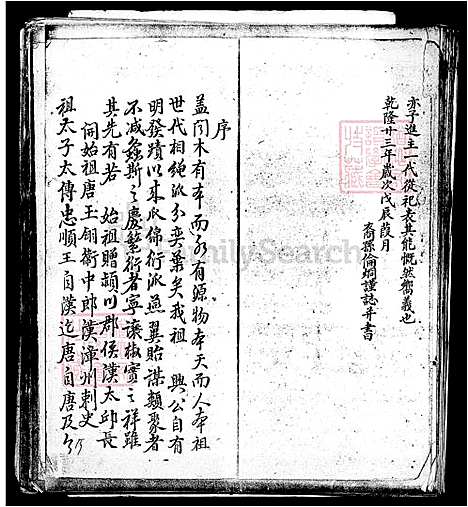 亦子進主一代從祀表其能慨然嚮義也
乾隆廿三年歲次戊辰葭月
裔孫倫炯謹誌并書
序
蓋聞木有本而水有源物本天而人本祖
世代相繩派分奕葉矣我祖 興公自有
明發蹟以來瓜綿衍派燕翼貽謀類聚者
不減螽斯之慶蕃衍者寧讓椒實之祥雖
其先有若 始祖贈穎川郡侯漢太邱長
伺始祖唐玉鈐衛中郎漢漳州刺史
祖太子太傅忠順王自漢迄唐自唐及今
FamilySearch